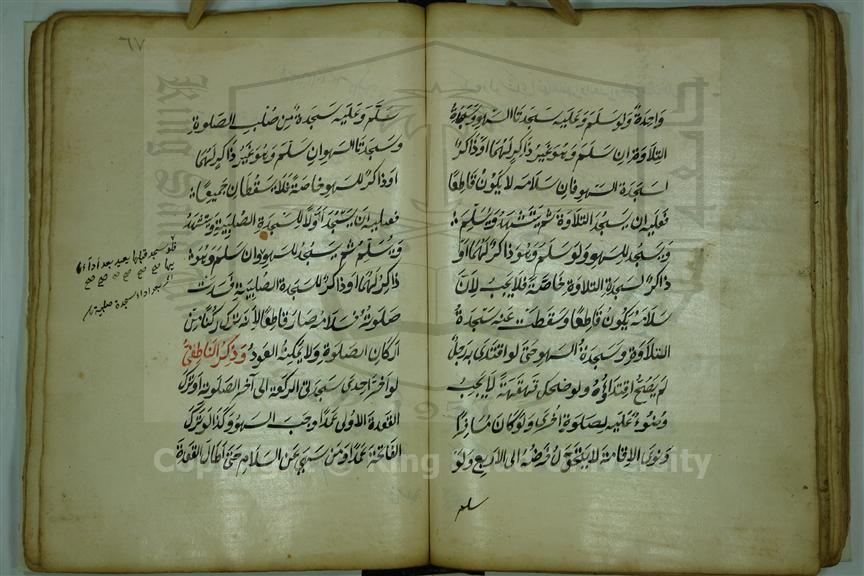 واحدة ولو سلم وعليه سجدتا السهو وسجدة
التلاوة ان سلم وهو غير ذاكر لهما او ذاكر
لسجدة السهو فان سلامه لا يكون قاطعا
فعليه ان يسجد التلاوة ثم يتشهد ويسلم
ويسجد للسهو ولو سلم وهو ذاكر لهما او
ذاكر لسجدة التلاوة خاصة فلا يجب لان
سلامه يكون قاطعا وسقطت عنه سجدة
التلاوة وسجدة السهو حتى لو اقتدى به رجل
لم يصح اقتداؤه ولو ضحك قهقهة لا يجب
وضوء عليه لصلوة اخرى ولو كان مسافرا
ونوى الاقامة لا يتحول فرضه الى الاربع ولو
سلم
٧٢
سلم وعليه سجدة من صلب الصلوة
وسجدتا السهو ان سلم وهو غير ذاكر لهما
او ذاكر للسهو خاصة فلا يسقطان جميعا
فعليه ان يسجد اولا للسجدة الصلبية ويتشهد
ويسلم ثم يسجد للسهو وان سلم وهو
ذاكر لهما او ذاكر للسجدة الصلبية فسدت
صلوته وسلامه صار قاطعا لانه ترك ركنا من
اركان الصلوة ولا يمكنه العود وذكر الناطفي
لو اخر احدى سجدتي الركعة الى آخر الصلوة او ترك
القعدة الاولى عمدا وجب السهو وكذا لو ترك
الفاتحة عمدا ومن سهى عن السلام حتى اطال القعدة
فلو سجد قبلها يعيد بعد اداء
صح صح صح صح صح
سجدة صلبية
Copyright © King Saud University